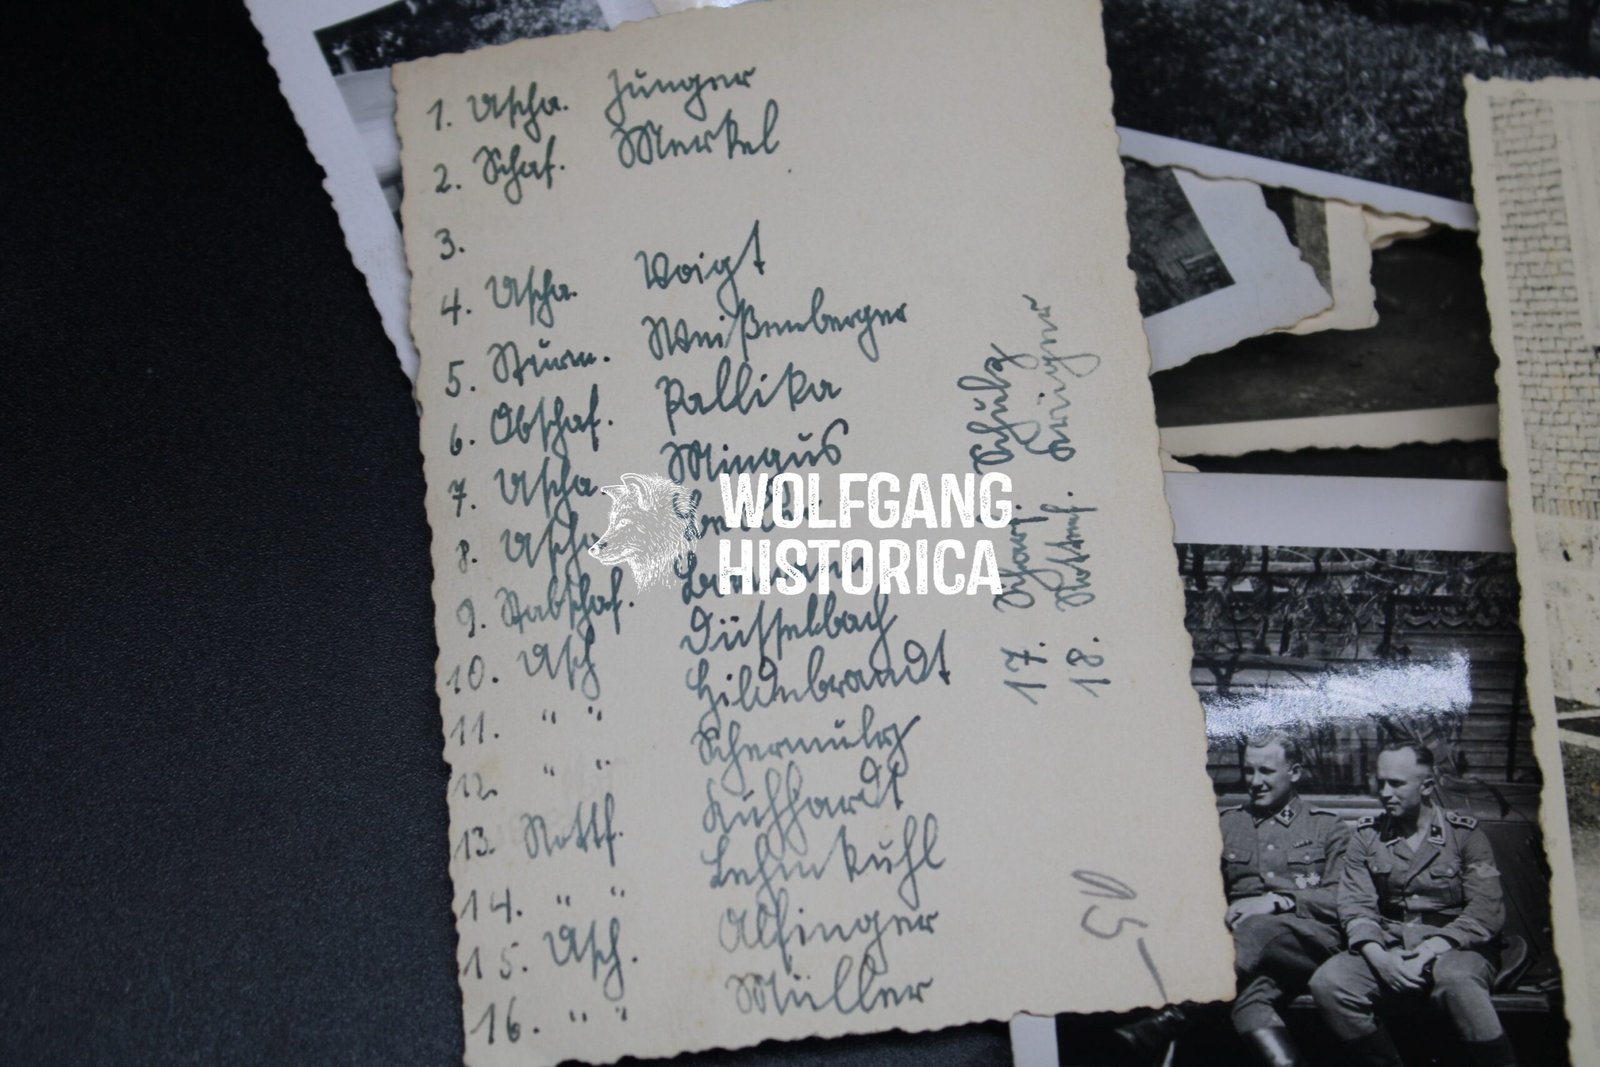 1. Uscha. Jünger
2. Schaf. Merkel
3.
4. Uscha. Voigt
5. Sturm. Weißenberger
6. Obschaf. Pallika
7. Uscha. Mingus
8. Uscha.
9. Stabschaf.
10. Usch Düsselbach
11. " " Hildebrandt
12. " " Schermuly
13. Rottf. Kuhhardt
14. " " Lehmkuhl
15. Usch. Alfinger
16. " " Müller
17. Scharf. Schulz
18. Heringer
50
WOLFGANG
HISTORICA